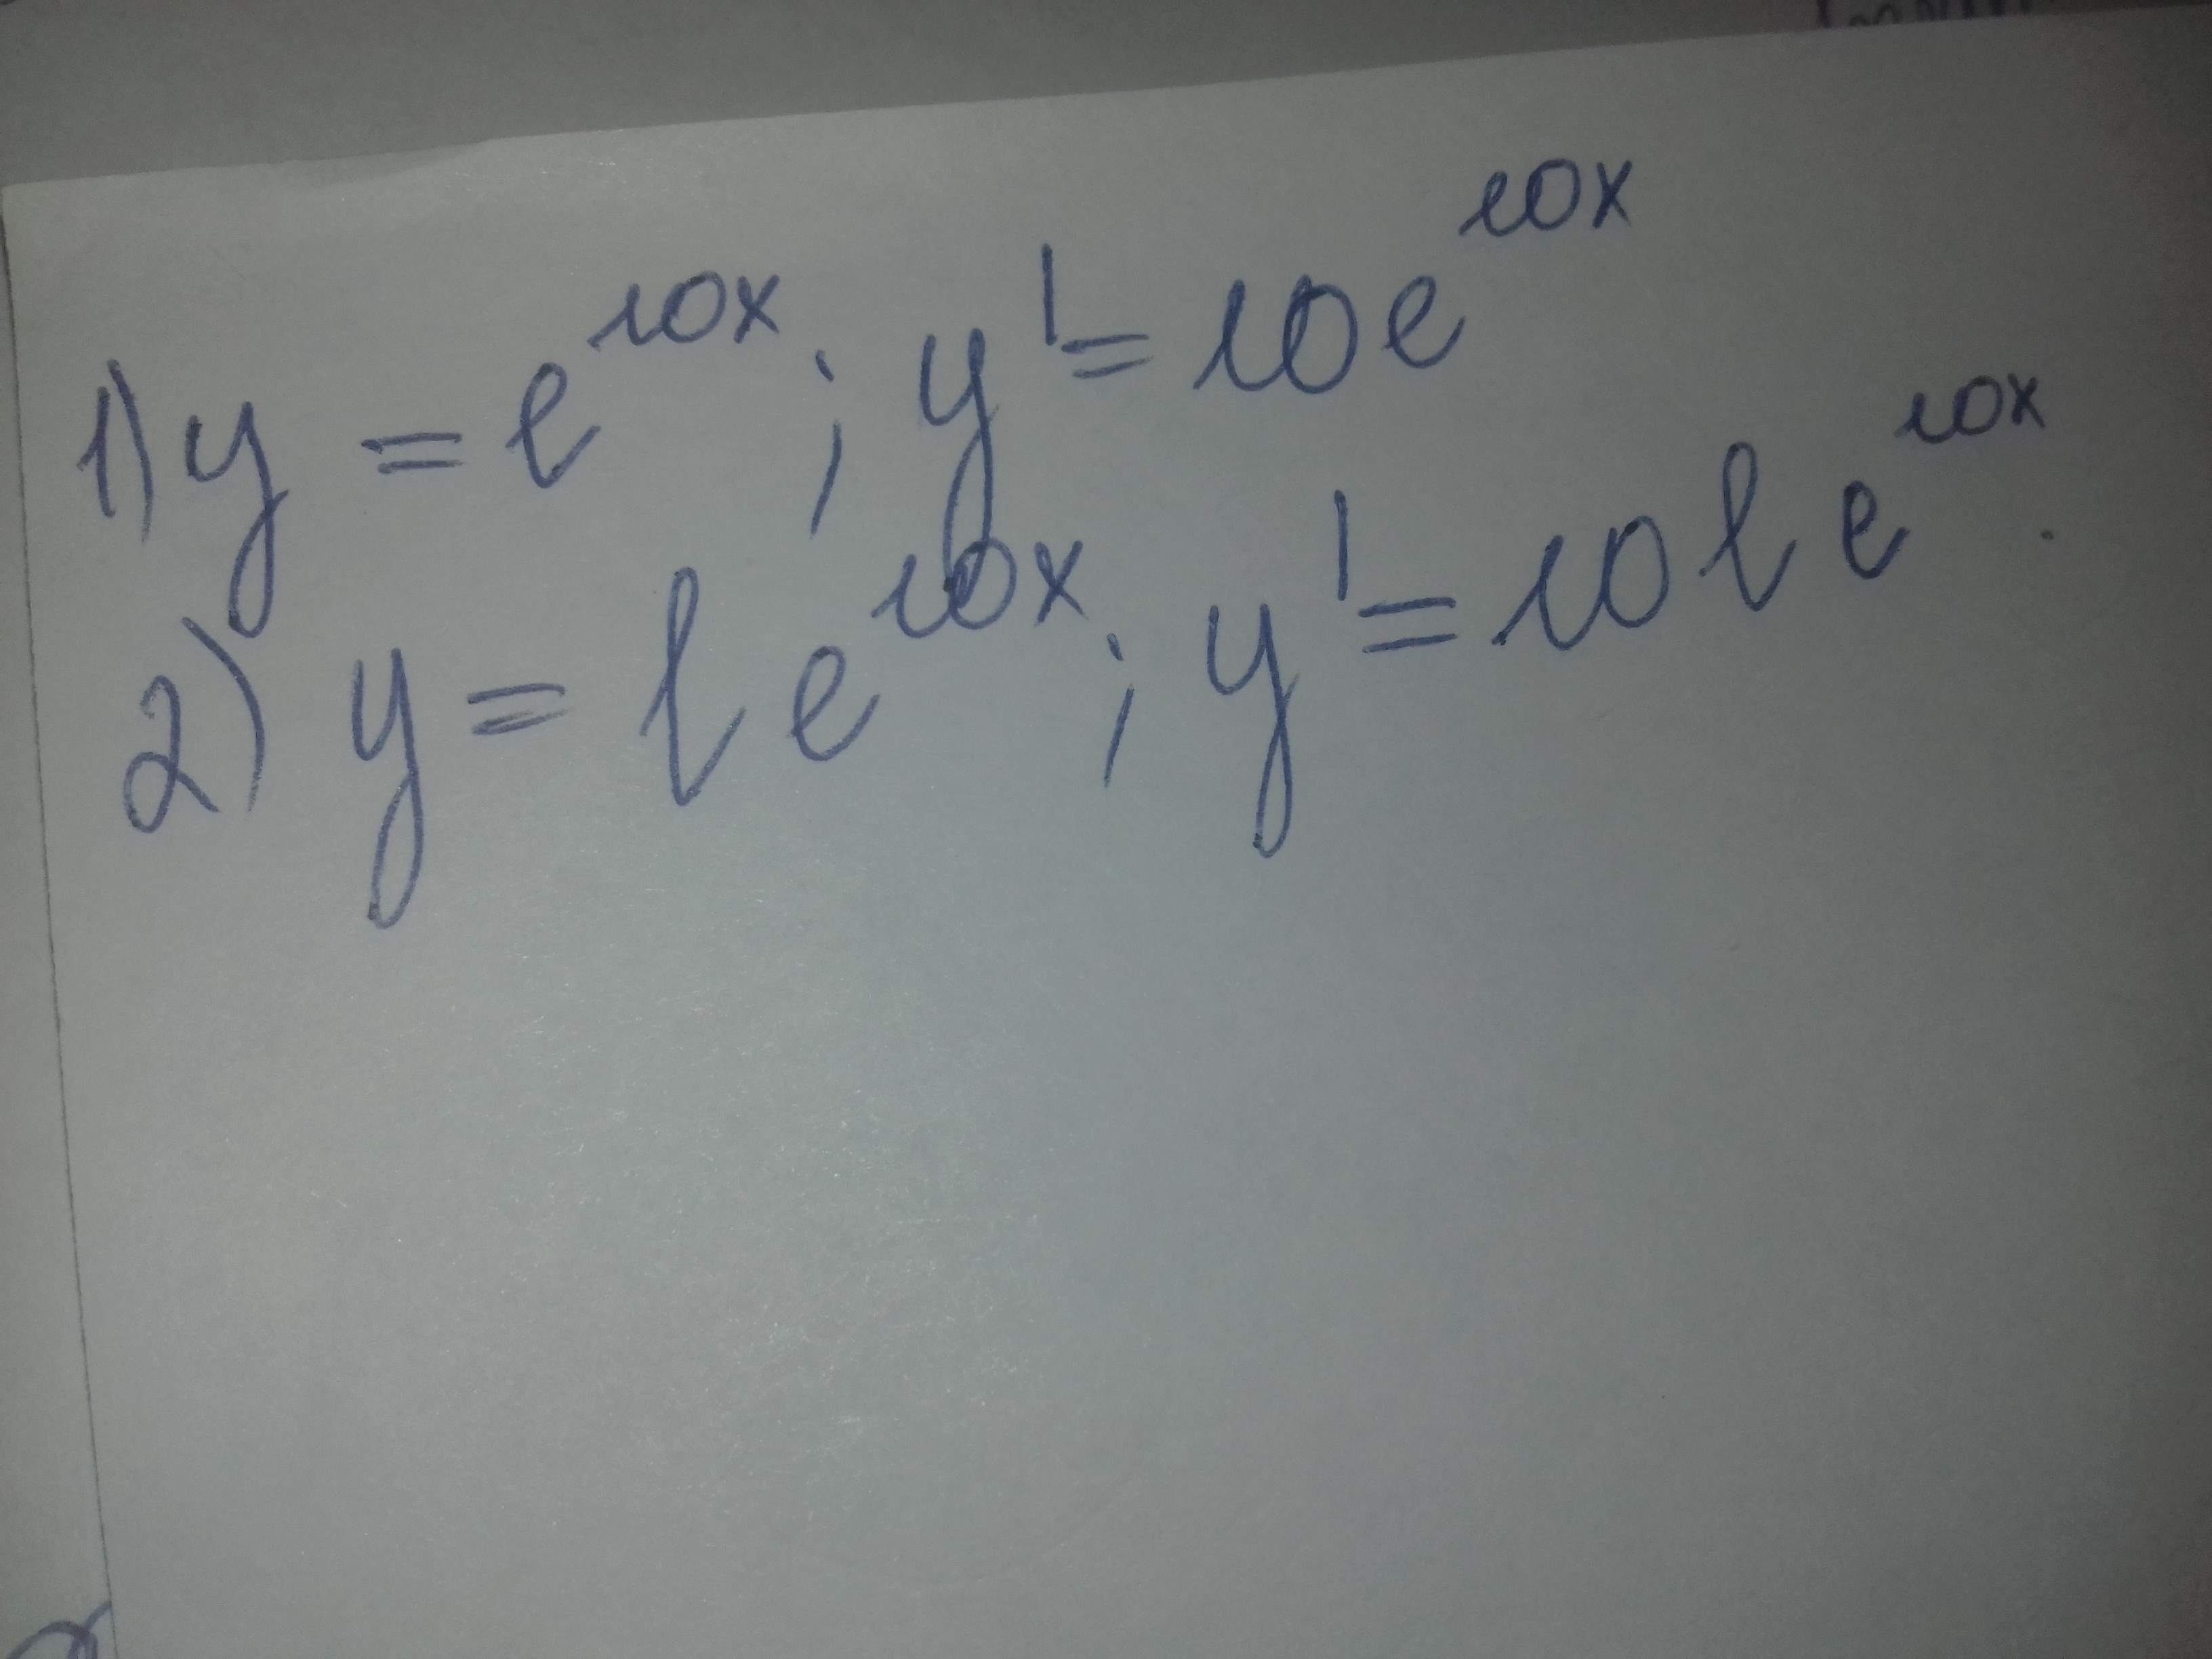 1) y = e^10x ; y' = 10e^10x
2) y = l e^10x ; y' = 10 l e^10x .